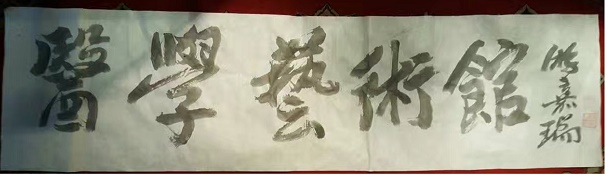 醫學藝術館
嘉瑞